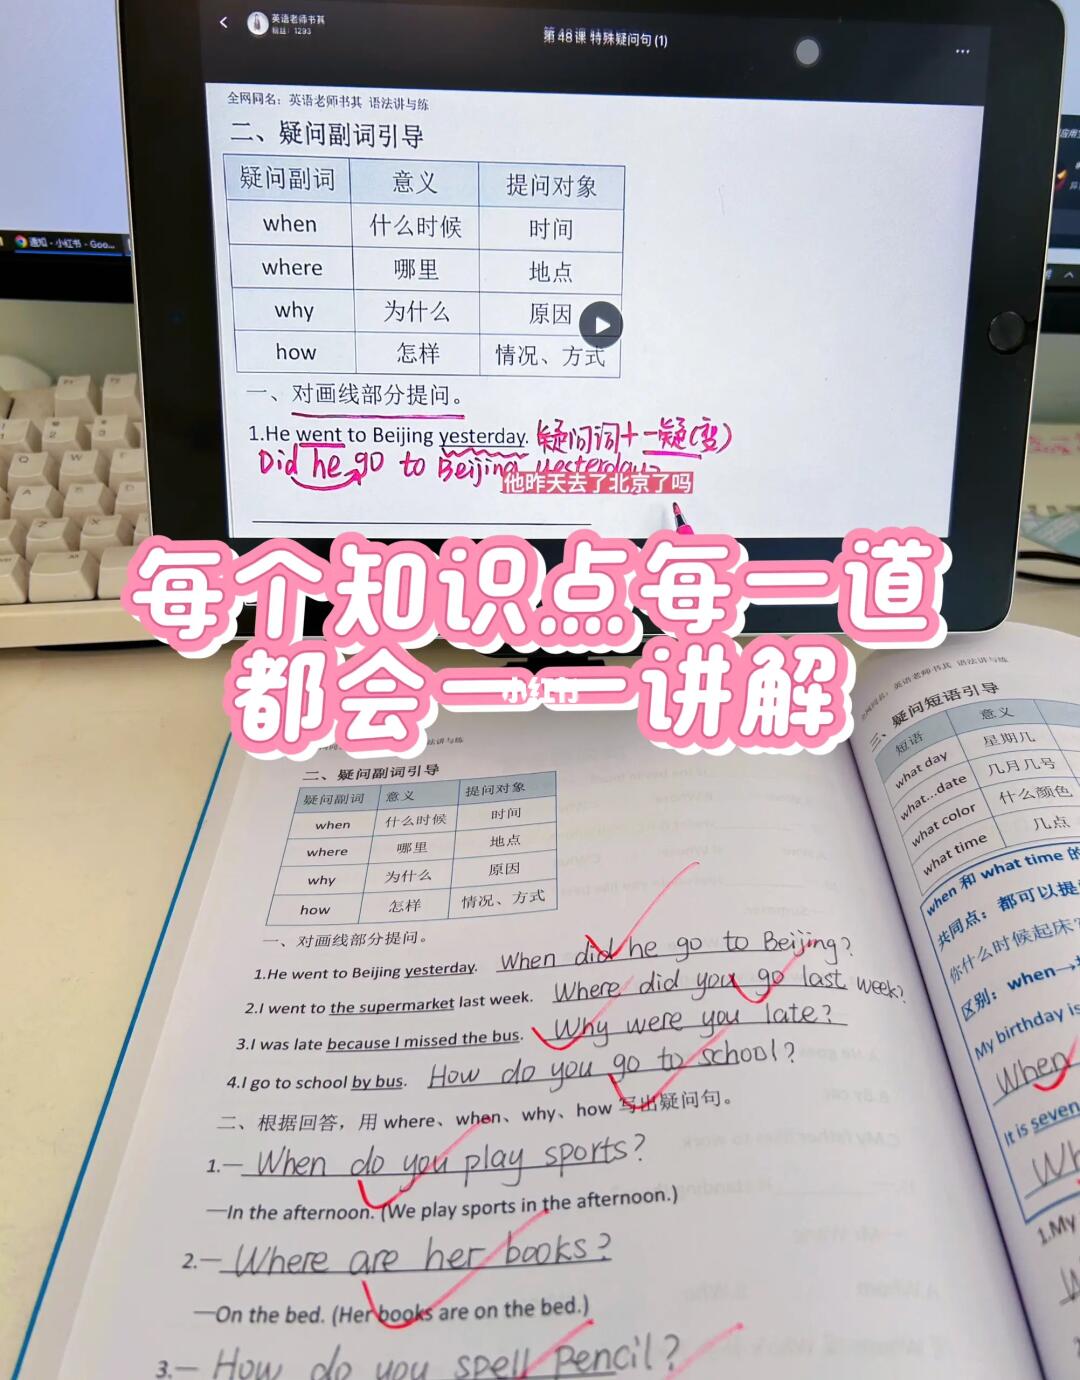 英语老师书其
第48课 特殊疑问句(1)
全网同名：英语老师书其 语法讲与练
二、疑问副词引导
疑问副词 意义 提问对象
when 什么时候 时间
where 哪里 地点
why 为什么 原因
how 怎样 情况、方式
一、对画线部分提问。
1.He went to Beijing yesterday. 疑问词+一疑(变)
Did he go to Beijing yesterday?
他昨天去了北京了吗
通知 · 小红书 - Goo...
每个知识点每一道
都会一一讲解
小红书
二、疑问副词引导
疑问副词 意义 提问对象
when 什么时候 时间
where 哪里 地点
why 为什么 原因
how 怎样 情况、方式
一、对画线部分提问。
1.He went to Beijing yesterday. When did he go to Beijing?
2.I went to the supermarket last week. Where did you go last week?
3.I was late because I missed the bus. Why were you late?
4.I go to school by bus. How do you go to school?
二、根据回答，用 where、when、why、how 写出疑问句。
1.— When do you play sports?
—In the afternoon. (We play sports in the afternoon.)
2.— Where are her books?
—On the bed. (Her books are on the bed.)
3.— How do you spell pencil?
全网同名：英语老师书其 语法讲与练
三、疑问短语引导
短语 意义
what day 星期几
what...date 几月几号
what color 什么颜色
what time 几点
when 和 what time 的
共同点：都可以提
你什么时候起床
区别：when→
My birthday is
When
It is seven
1.My